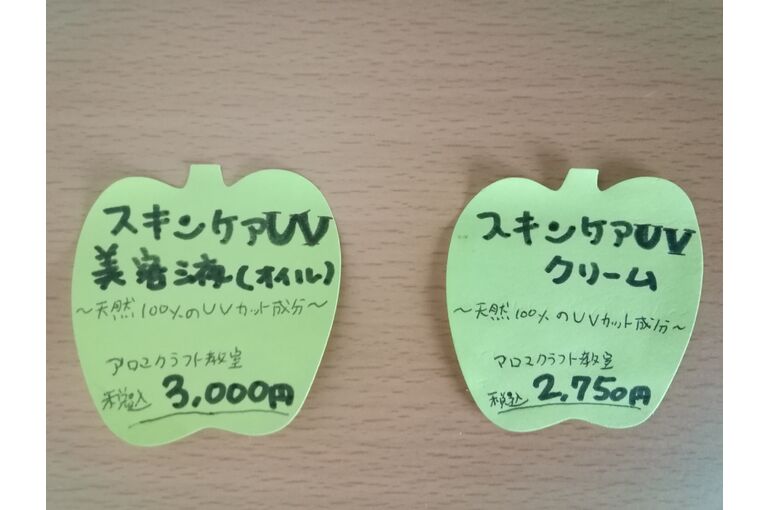 スキンケアUV
美容液(オイル)
～天然100%のUVカット成分～
アロマクラフト教室
税込 3,000円
スキンケアUV
クリーム
～天然100%のUVカット成分～
アロマクラフト教室
税込 2,750円